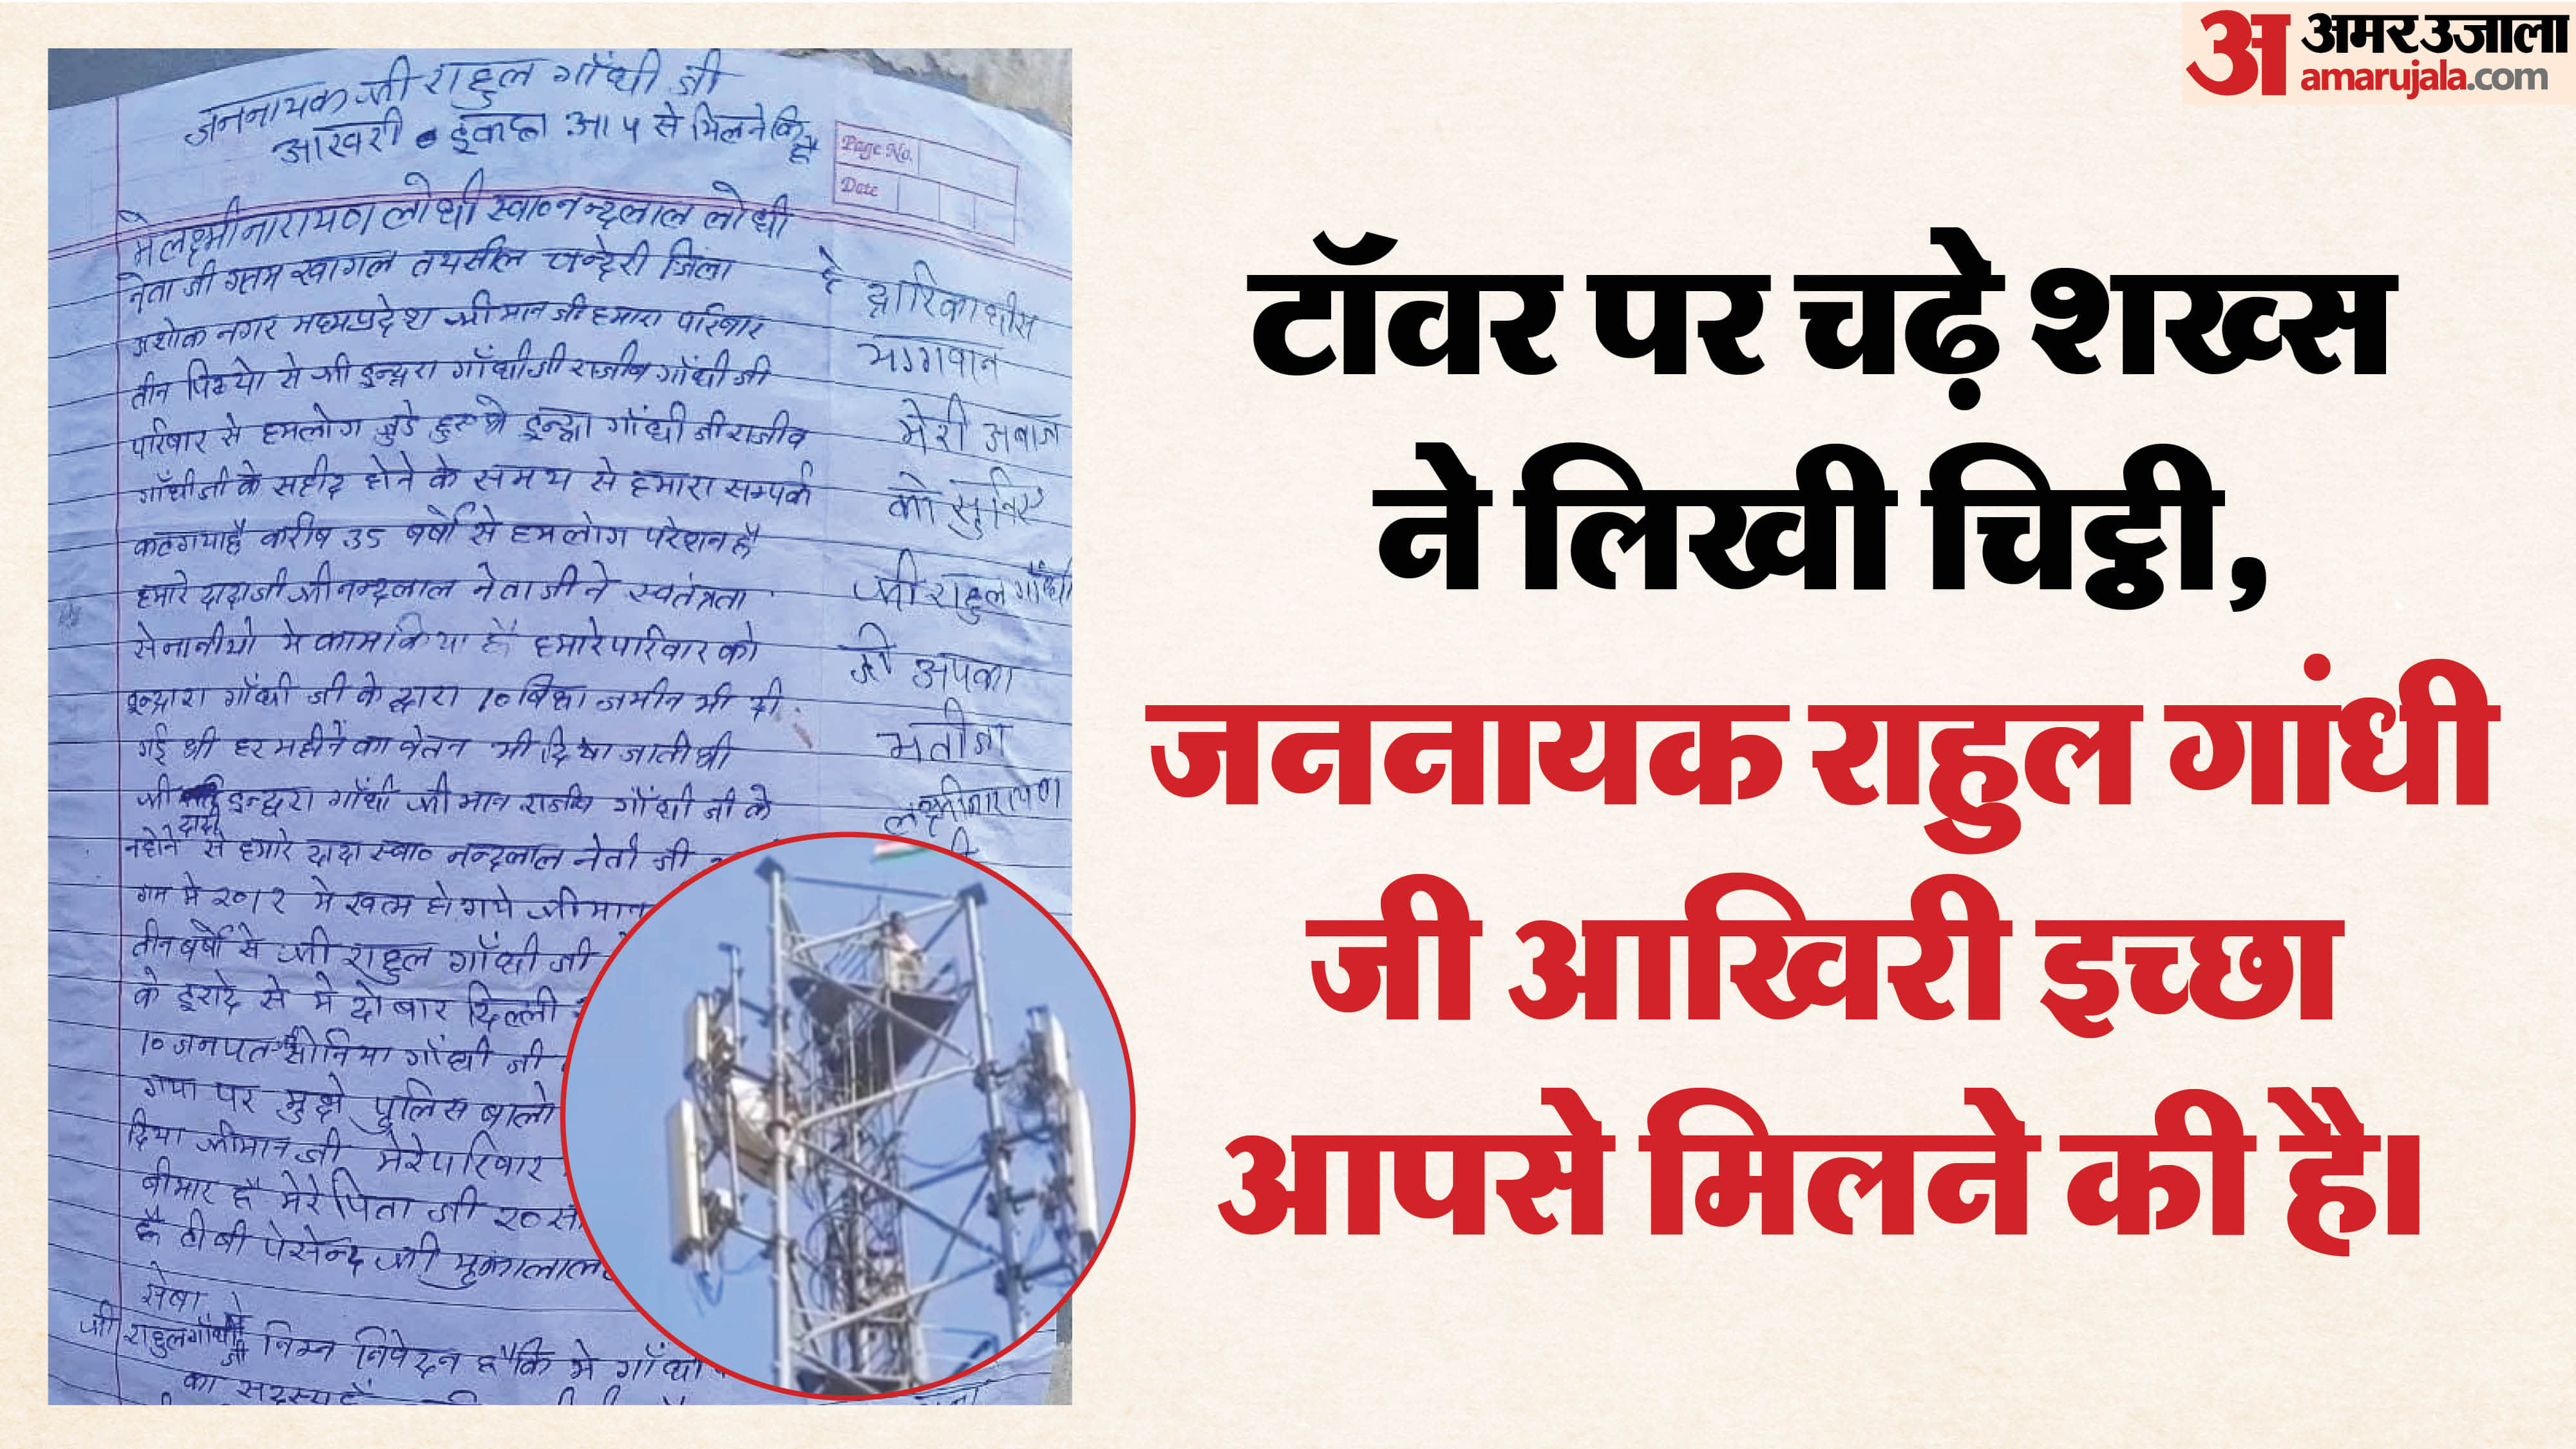 अ अमर उजाला
amarujala.com
टॉवर पर चढ़े शख्स
ने लिखी चिट्ठी,
जननायक राहुल गांधी
जी आखिरी इच्छा
आपसे मिलने की है।
जननायक श्री राहुल गाँधी जी
आखरी इकछा आप से मिलने कि है
Page No.
Date
मे लक्ष्मीनारायण लोधी स्वा० नन्दलाल लोधी
नेता जी ग्राम खागल तयसील चन्देरी जिला
अशोक नगर मध्यप्रदेश श्री मान जी हमारा परिबार
तीन पिढयो से श्री इन्द्रा गाँधी जी राजीव गाँधी जी
परिबार से हमलोग जुडे हुए थे इन्द्रा गाँधी जी राजीव
गाँधी जी के सहीद होने के समय से हमारा सम्पर्क
कटगया है करीब 35 बर्षो से हम लोग परेशान है
हमारे दादाजी श्री नन्दलाल नेता जी ने स्वतंत्रता
सेनानीयो मे काम किया है हमारे परिवार को
इन्द्रारा गाँधी जी के द्वारा 10 बिघा जमीन भी दी
गई थी हर महीने का वेतन भी दिया जाती थी
श्री दादी इन्द्वरा गाँधी श्री मान राजीव गाँधी जी के
नहोने से हमारे दादा स्वा० नन्दलाल नेता जी
गम मे २०१२ मे खत्म हो गये श्री मान
तीन बर्षो से श्री राहुल गाँधी जी
के इरादे से मे दो बार दिल्ली
10 जनपत सोनिया गाँधी जी
गया पर मुझे पुलिस बालो
दिया श्रीमान जी मेरे परिवार
बीमार है मेरे पिता जी २०
है टी बी पेसेन्द श्री
सेबा मे
श्री राहुल गाँधी जी निम्न निवेदन है कि मे गाँधी
का सदस्य हूँ
हे द्वारिकाधीस
भगवान
मेरी अबाज
को सुनिए
श्री राहुल गाँधी
जी अपका
भतीजा
लक्ष्मीनारायण